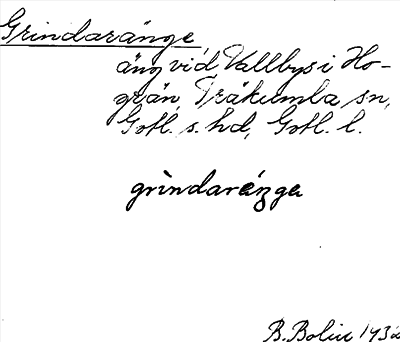 Grindaränge
äng vid Vallbys i Ho-
grän, Träkumla sn,
Gotl. s. hd, Gotl. l.
grindaränga
B. Bolin 1932